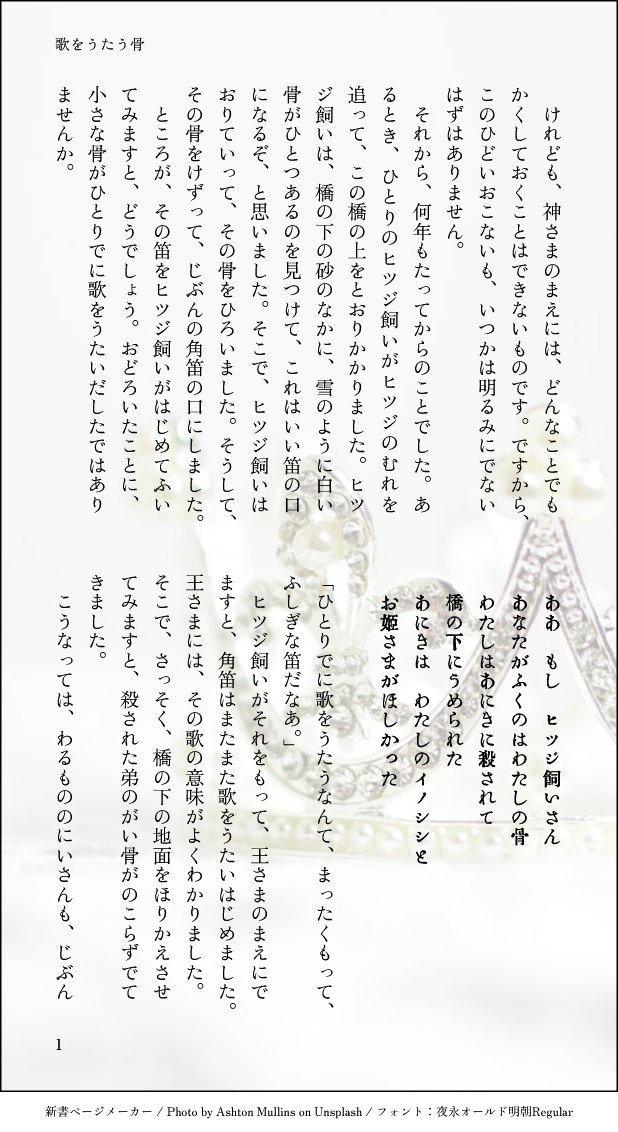 歌をうたう骨
　けれども、神さまのまえには、どんなことでも
かくしておくことはできないものです。ですから、
このひどいおこないも、いつかは明るみにでない
はずはありません。
　それから、何年もたってからのことでした。あ
るとき、ひとりのヒツジ飼いがヒツジのむれを
追って、この橋の上をとおりかかりました。ヒツ
ジ飼いは、橋の下の砂のなかに、雪のように白い
骨がひとつあるのを見つけて、これはいい笛の口
になるぞ、と思いました。そこで、ヒツジ飼いは
おりていって、その骨をひろいました。そうして、
その骨をけずって、じぶんの角笛の口にしました。
　ところが、その笛をヒツジ飼いがはじめてふい
てみますと、どうでしょう。おどろいたことに、
小さな骨がひとりでに歌をうたいだしたではあり
ませんか。
ああ　もし　ヒツジ飼いさん
あなたがふくのはわたしの骨
わたしはあにきに殺されて
橋の下にうめられた
あにきは　わたしのイノシシと
お姫さまがほしかった
「ひとりでに歌をうたうなんて、まったくもって、
ふしぎな笛だなあ。」
　ヒツジ飼いがそれをもって、王さまのまえにで
ますと、角笛はまたまた歌をうたいはじめました。
王さまには、その歌の意味がよくわかりました。
そこで、さっそく、橋の下の地面をほりかえさせ
てみますと、殺された弟のがい骨がのこらずでて
きました。
　こうなっては、わるもののにいさんも、じぶん
1
新書ページメーカー / Photo by Ashton Mullins on Unsplash / フォント：夜永オールド明朝Regular